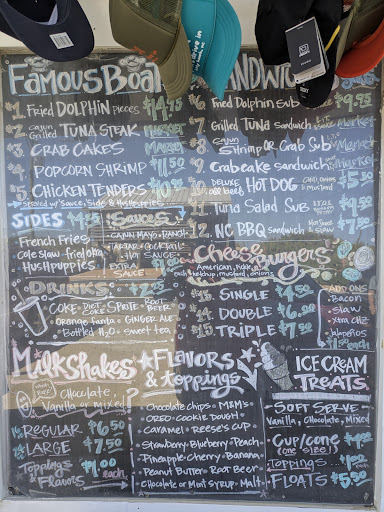 FAMOUS BOAT
SANDWICH
#1. Fried DOLPHIN pieces $14.75
2. cajun Grilled TUNA STEAK MARKET
3. CRAB CAKES MARKET
4. POPCORN SHRIMP $11.50
5. CHICKEN TENDERS
Served w/ Sauce, Side & Hushpuppies
#6. Fried Dolphin Sub $9.95
7. Grilled TUNA sandwich Market
8. SHRIMP OR CRAB Sub Market
9. Crabcake sandwich Market
10. DELUXE HOT DOG $5.50
11. Tuna Salad Sub
12. NC BBQ Sandwich
SIDES
French Fries
Cole Slaw fried okra
Hushpuppies
Sauces
CAJUN MAYO • RANCH
TARTAR • COCKTAIL
HOT SAUCE
EXTRA SAUCE
DRINKS
COKE • DIET COKE • SPRITE • ROOT BEER
Orange fanta • GINGER ALE
Bottled H2O • sweet tea
CheeseBurgers
American, Pickle,
ketchup, mustard, onions
13. SINGLE $4.50
14. DOUBLE $6.00
15. TRIPLE $7.50
ADD ONS
Bacon
Slaw
Xtra CHZ
Jalapeños
$1.00 each
Milkshakes
Chocolate
Vanilla or mixed
REGULAR $6.50
LARGE $7.50
Toppings & Flavors $1.00 each
FLAVORS & toppings
Chocolate chips • M&M's
OREO COOKIE DOUGH
Caramel • REESE'S CUP
Strawberry • Blueberry • Peach
Pineapple • Cherry • Banana
Peanut Butter • ROOT BEER
CHOCOLATE or MINT SYRUP • MALT
ICE CREAM TREATS
SOFT SERVE
Vanilla, Chocolate, Mixed
Cup/cone $4.00
(one size!)
TOPPINGS $1.00 each
FLOATS $5.50